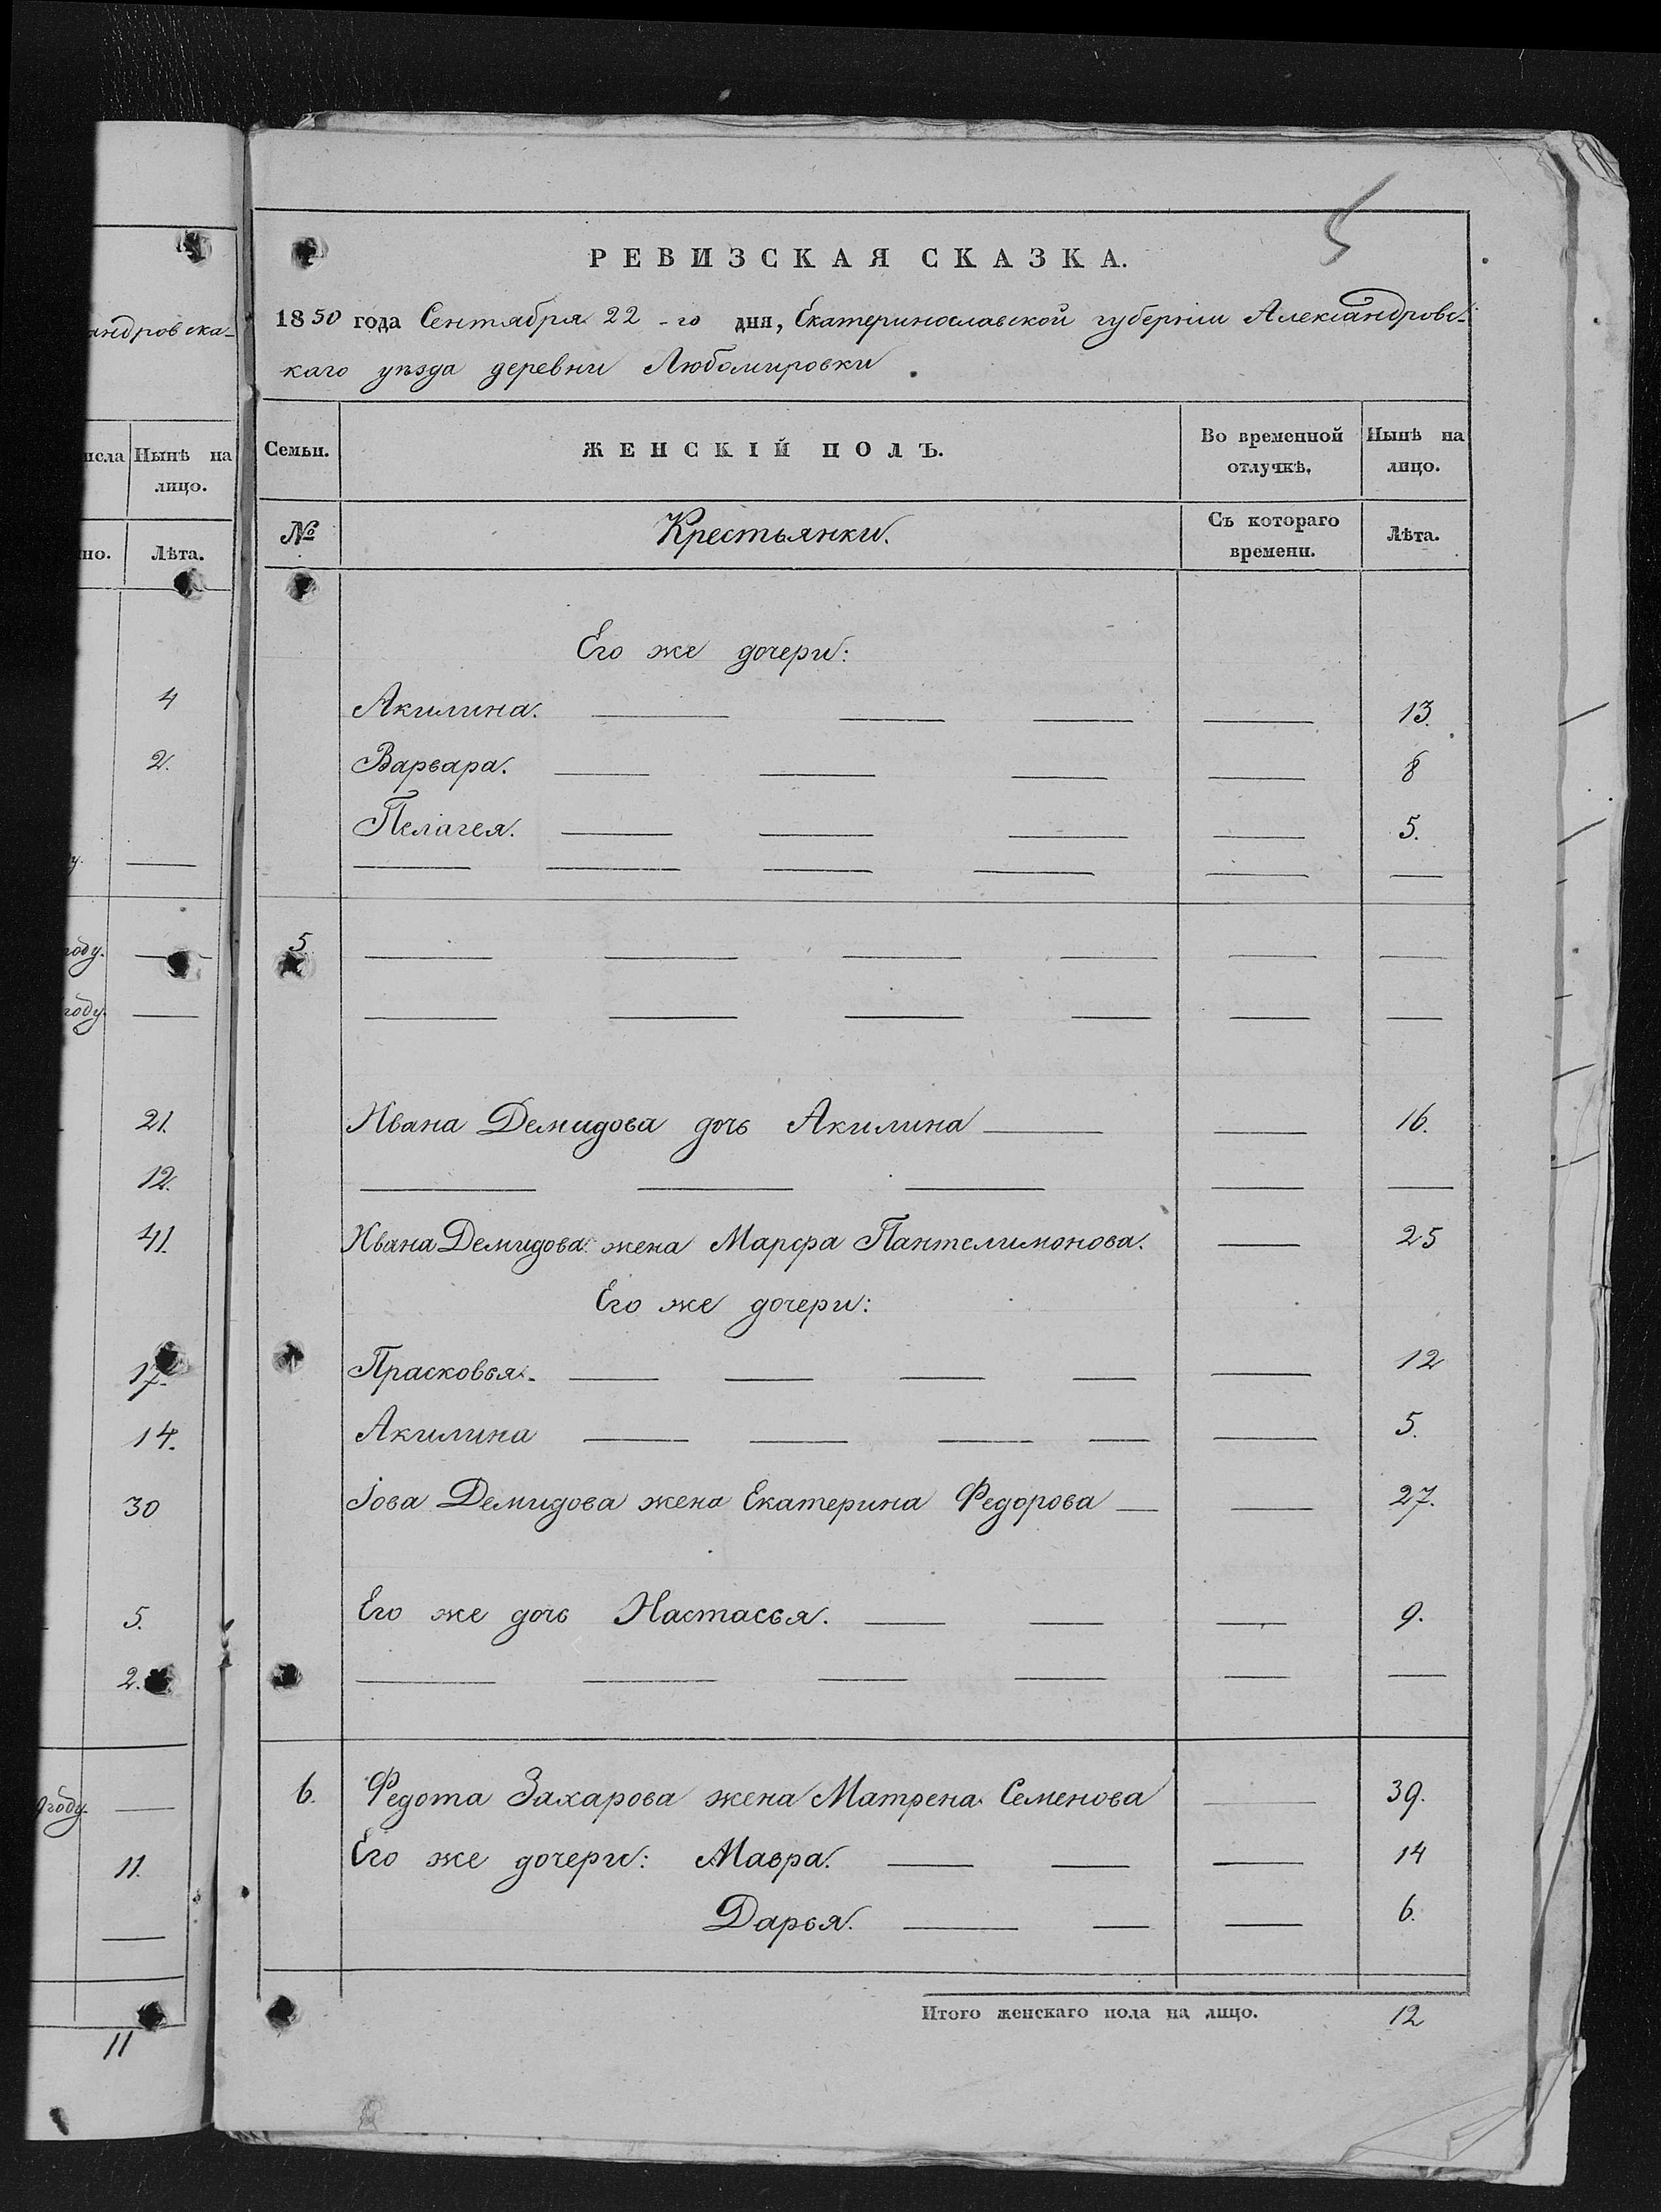 андровска-
исла Нынѣ на
лицо.
но. Лѣта.
4
2.
у.
году.
году.
21.
12.
41.
17.
14.
30
5.
2.
году.
11.
11
5
РЕВИЗСКАЯ СКАЗКА.
1850 года Сентября 22-го дня, Екатеринославской губерніи Александровс-
каго уѣзда деревни Любомировки.
Семьи. ЖЕНСКІЙ ПОЛЪ. Во временной отлучкѣ. Нынѣ на лицо.
№ Крестьянки. Съ котораго времени. Лѣта.
Его же дочери:
Акилина. — — — — 13.
Варвара. — — — — 8
Пелагея. — — — — 5.
— — — — — —
5 — — — — — —
— — — — — —
Ивана Демидова дочь Акилина — — 16.
— — — — —
Ивана Демидова жена Марфа Пантелимонова. — 25
Его же дочери:
Прасковья. — — — — — 12
Акилина — — — — — 5.
Іова Демидова жена Екатерина Федорова — — 27.
Его же дочь Настасья. — — — 9.
— — — — — —
6. Федота Захарова жена Матрена Семенова — 39.
Его же дочери: Мавра. — — — 14
Дарья. — — — 6.
Итого женскаго пола на лицо. 12